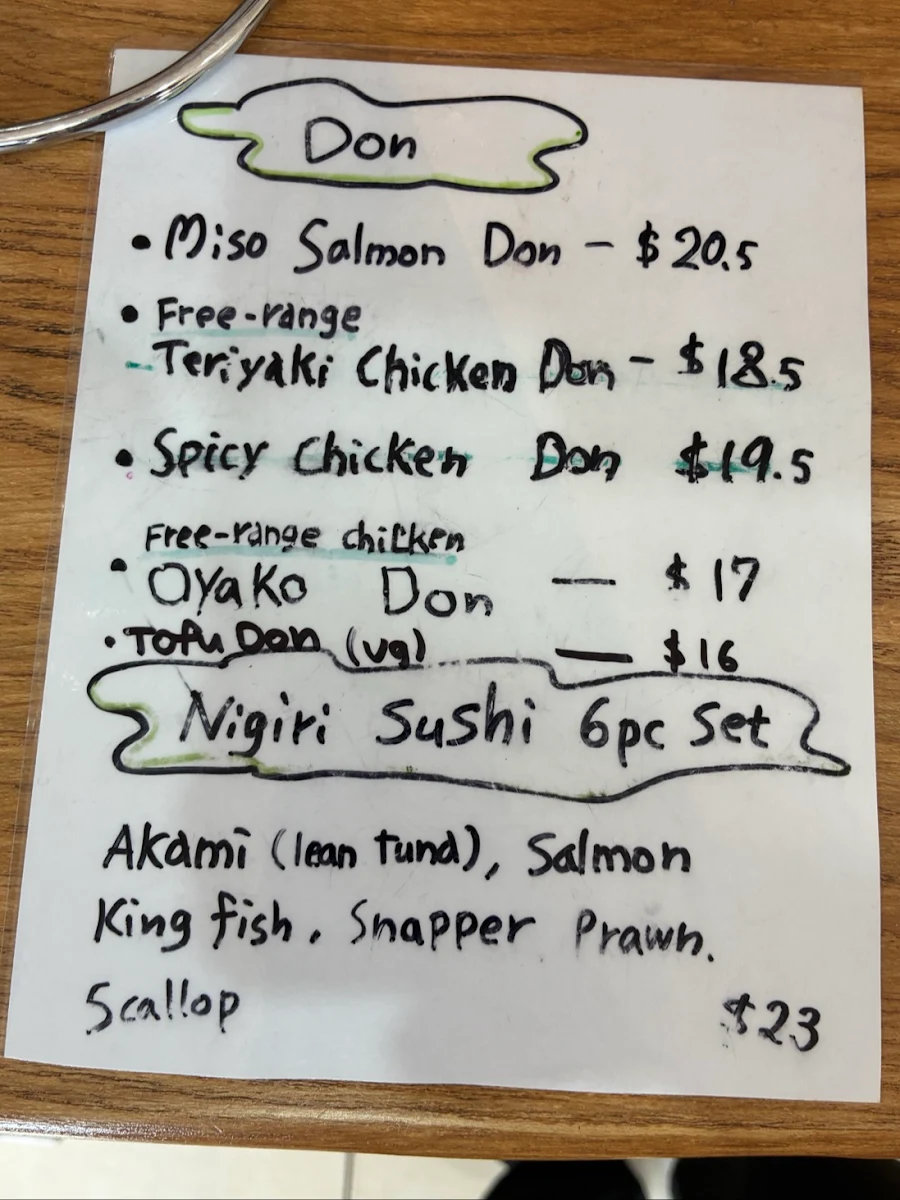 Don
• Miso Salmon Don - $20.5
• Free-range
- Teriyaki Chicken Don - $18.5
• Spicy Chicken Don $19.5
Free-range chicken
• Oyako Don — $17
• Tofu Don (vg) — $16
Nigiri Sushi 6pc Set
Akami (lean tuna), Salmon
King fish, Snapper Prawn.
Scallop $23